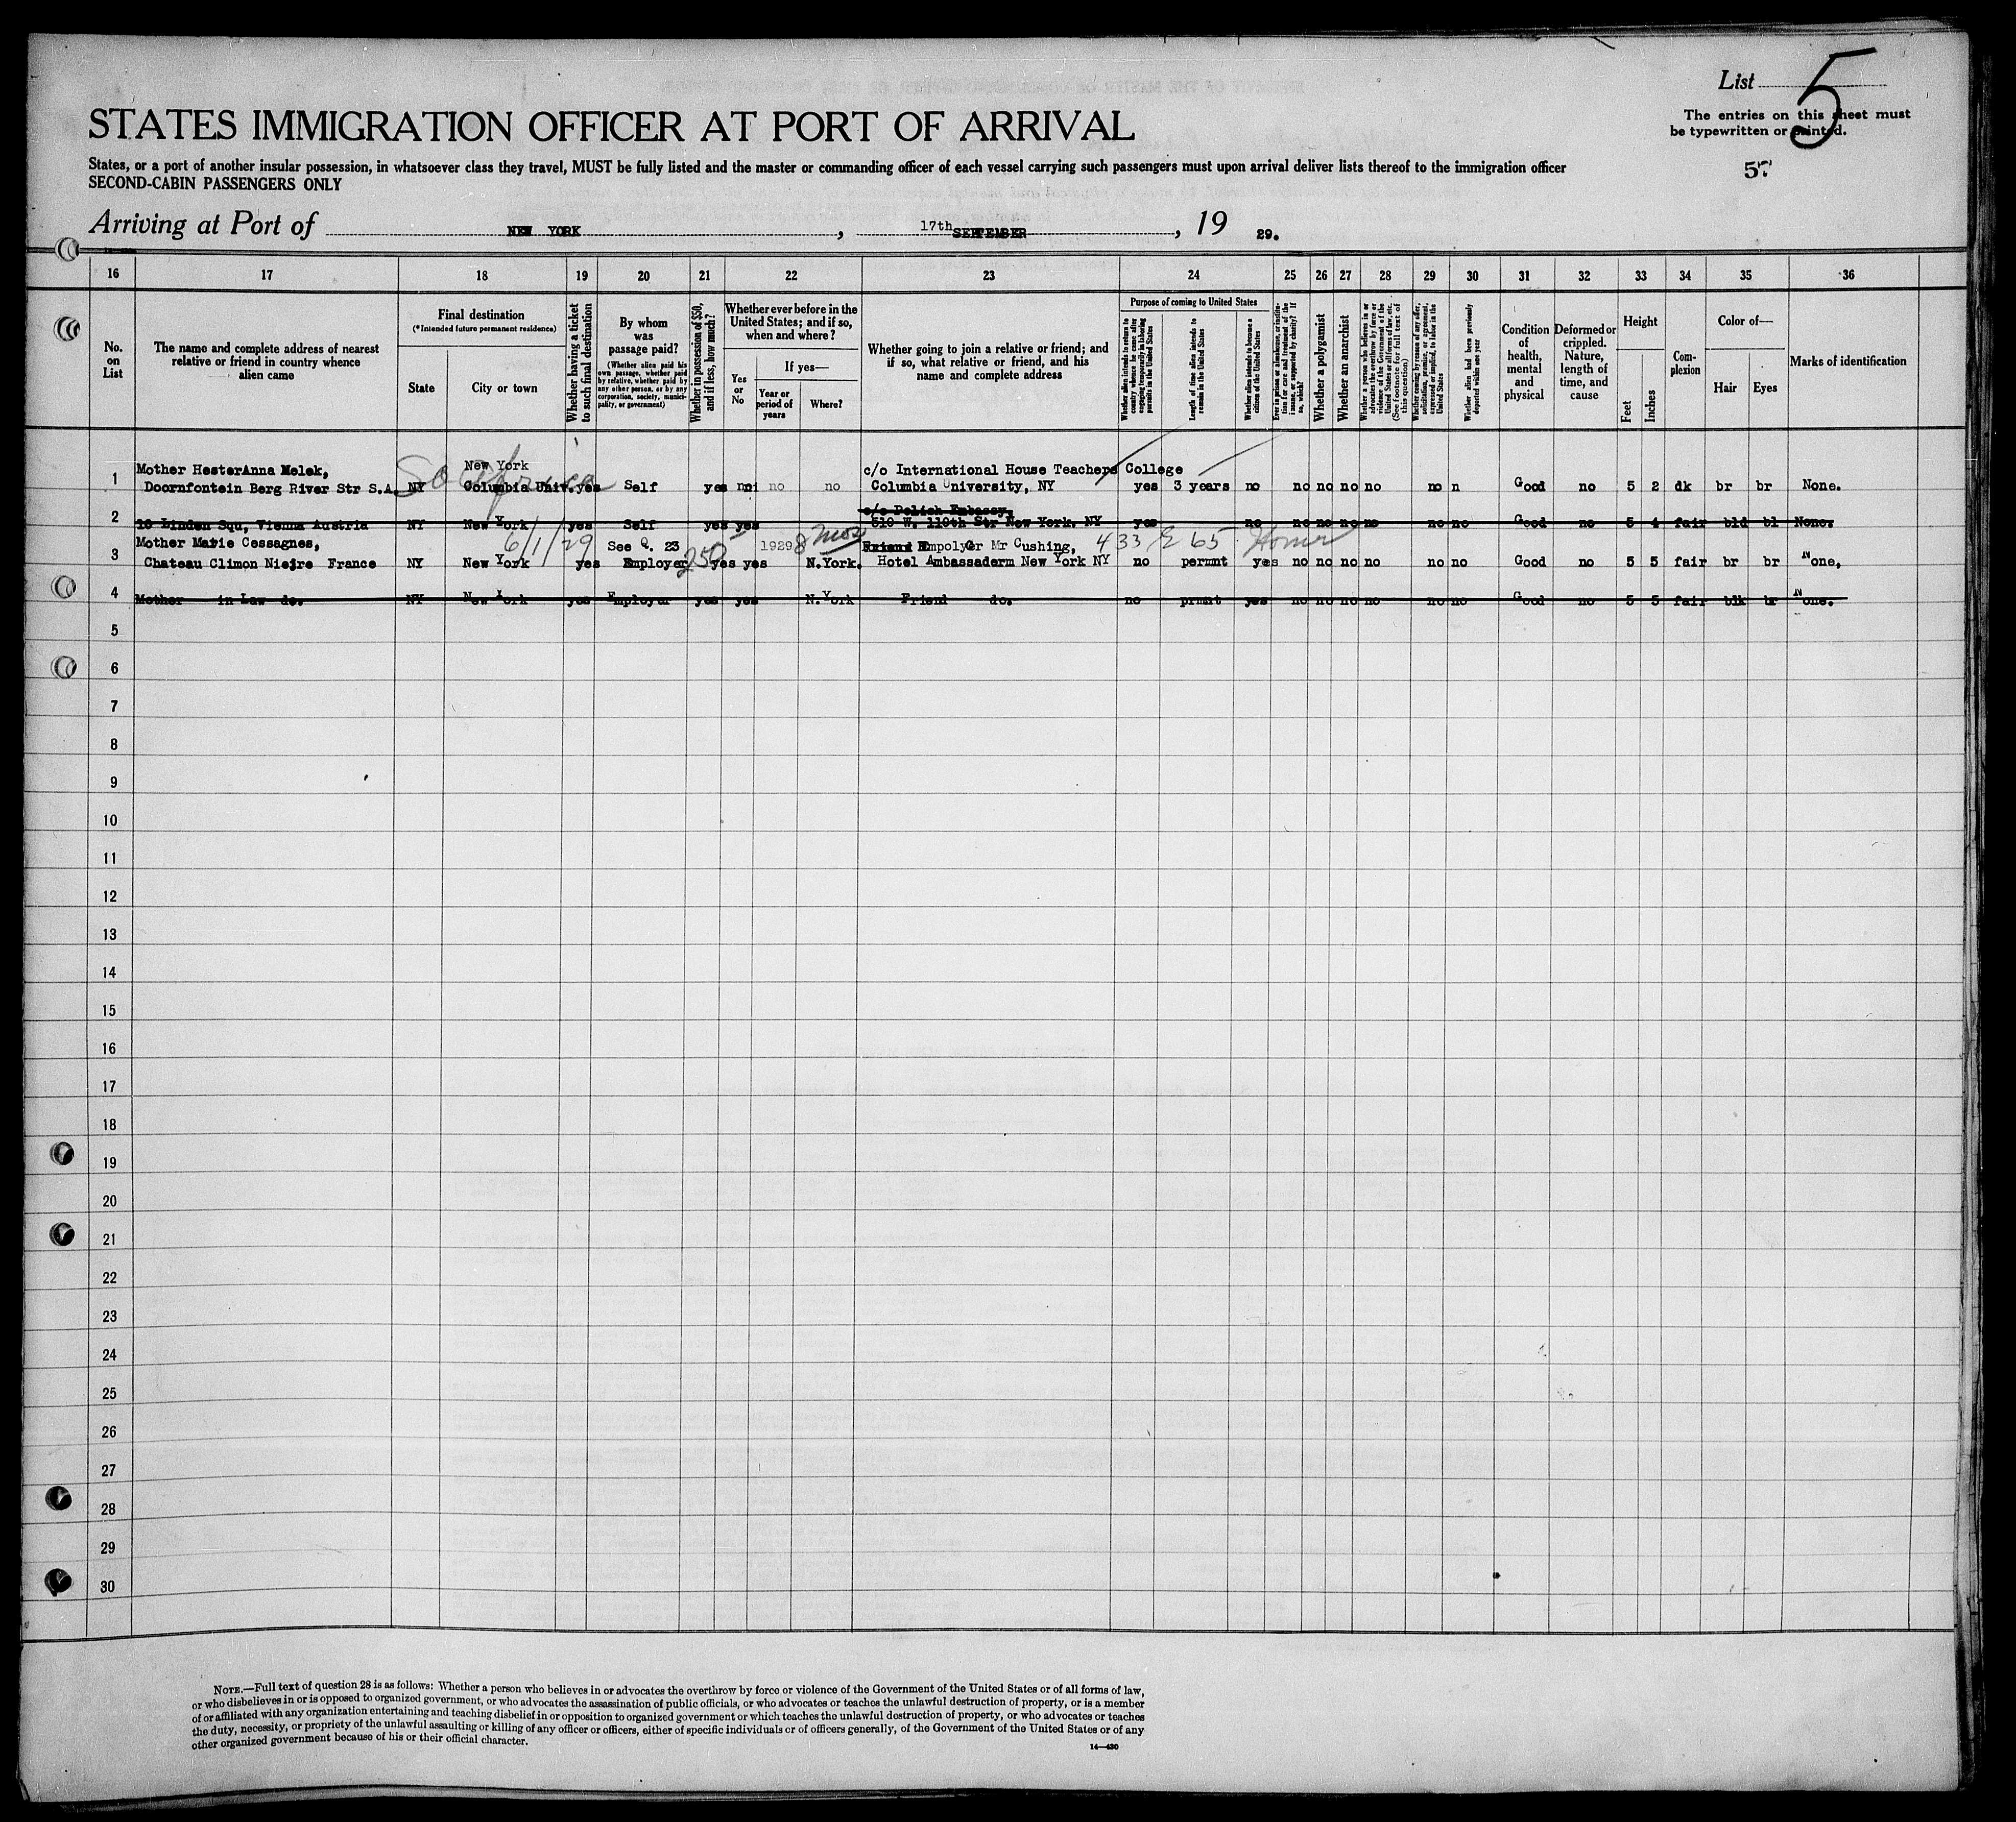 List 5
The entries on this sheet must
be typewritten or printed.
5.
STATES IMMIGRATION OFFICER AT PORT OF ARRIVAL
States, or a port of another insular possession, in whatsoever class they travel, MUST be fully listed and the master or commanding officer of each vessel carrying such passengers must upon arrival deliver lists thereof to the immigration officer
SECOND-CABIN PASSENGERS ONLY
Arriving at Port of NEW YORK, 17th SEPTEMBER, 19 29.
16 17 18 19 20 21 22 23 24 25 26 27 28 29 30 31 32 33 34 35 36
No. on List
The name and complete address of nearest relative or friend in country whence alien came
Final destination
(*Intended future permanent residence)
State
City or town
Whether having a ticket to such final destination
By whom was passage paid?
(Whether alien paid his own passage, whether paid by relative, whether paid by any other person, or by any corporation, society, municipality, or government)
Whether in possession of $50, and if less, how much?
Whether ever before in the United States; and if so, when and where?
Yes or No
If yes—
Year or period of years
Where?
Whether going to join a relative or friend; and if so, what relative or friend, and his name and complete address
Purpose of coming to United States
Whether alien intends to return to country whence he came after engaging temporarily in laboring pursuits in the United States
Length of time alien intends to remain in the United States
Whether alien intends to become a citizen of the United States
Ever in prison or almshouse, or institution for care and treatment of the insane, or supported by charity? If so, which?
Whether a polygamist
Whether an anarchist
Whether a person who believes in or advocates the overthrow by force or violence of the Government of the United States or all forms of law, etc. (See footnote for full text of this question)
Whether coming by reason of any offer, solicitation, promise, or agreement, expressed or implied, to labor in the United States
Whether alien had been previously deported within one year
Condition of health, mental and physical
Deformed or crippled. Nature, length of time, and cause
Height
Feet
Inches
Complexion
Color of—
Hair
Eyes
Marks of identification
So Africa
Mother HesterAnna Melek, New York c/o International House Teachers College
1 Doornfontein Berg River Str S.A. NY Columbia Univ. yes Self yes no no no Columbia University, NY yes 3 years no no no no no no n Good no 5 2 dk br br None.
c/o Polish Embassy,
2 16 Linden Squ, Vienna Austria NY New York yes Self yes yes 510 W. 110th Str New York. NY yes no no no no no no no Good no 5 4 fair bld bl None.
6/1/29 250 8 mos 433 E 65 Homer
Mother Marie Cessagnes, See Q. 23 1929 Friend Empolyer Mr Cushing,
3 Chateau Climon Niejre France NY New York yes Employer yes yes N.York. Hotel Ambassaderm New York NY no permnt yes no no no no no no Good no 5 5 fair br br None.
4 Mother in Law do. NY New York yes Employer yes yes N.York Friend do. no prmnt yes no no no no no no Good no 5 5 fair blk br None.
5
6
7
8
9
10
11
12
13
14
15
16
17
18
19
20
21
22
23
24
25
26
27
28
29
30
NOTE.—Full text of question 28 is as follows: Whether a person who believes in or advocates the overthrow by force or violence of the Government of the United States or of all forms of law,
or who disbelieves in or is opposed to organized government, or who advocates the assassination of public officials, or who advocates or teaches the unlawful destruction of property, or is a member
of or affiliated with any organization entertaining and teaching disbelief in or opposition to organized government or which teaches the unlawful destruction of property, or who advocates or teaches
the duty, necessity, or propriety of the unlawful assaulting or killing of any officer or officers, either of specific individuals or of officers generally, of the Government of the United States or of any
other organized government because of his or their official character.
14—430